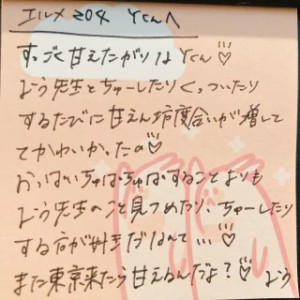 エルメ204 Yくんへ
すっごく甘えたがりなYくん♡
よう先生とちゅーしたりくっついたり
するたびに甘えん坊度合いが増して
てかわいかったの♡
おっぱいちゅぱちゅぱすることよりも
よう先生のこと見つめたり、ちゅーしたり
する方が好きだなんて…♡
また東京来たら甘えるんだよ?♡よう